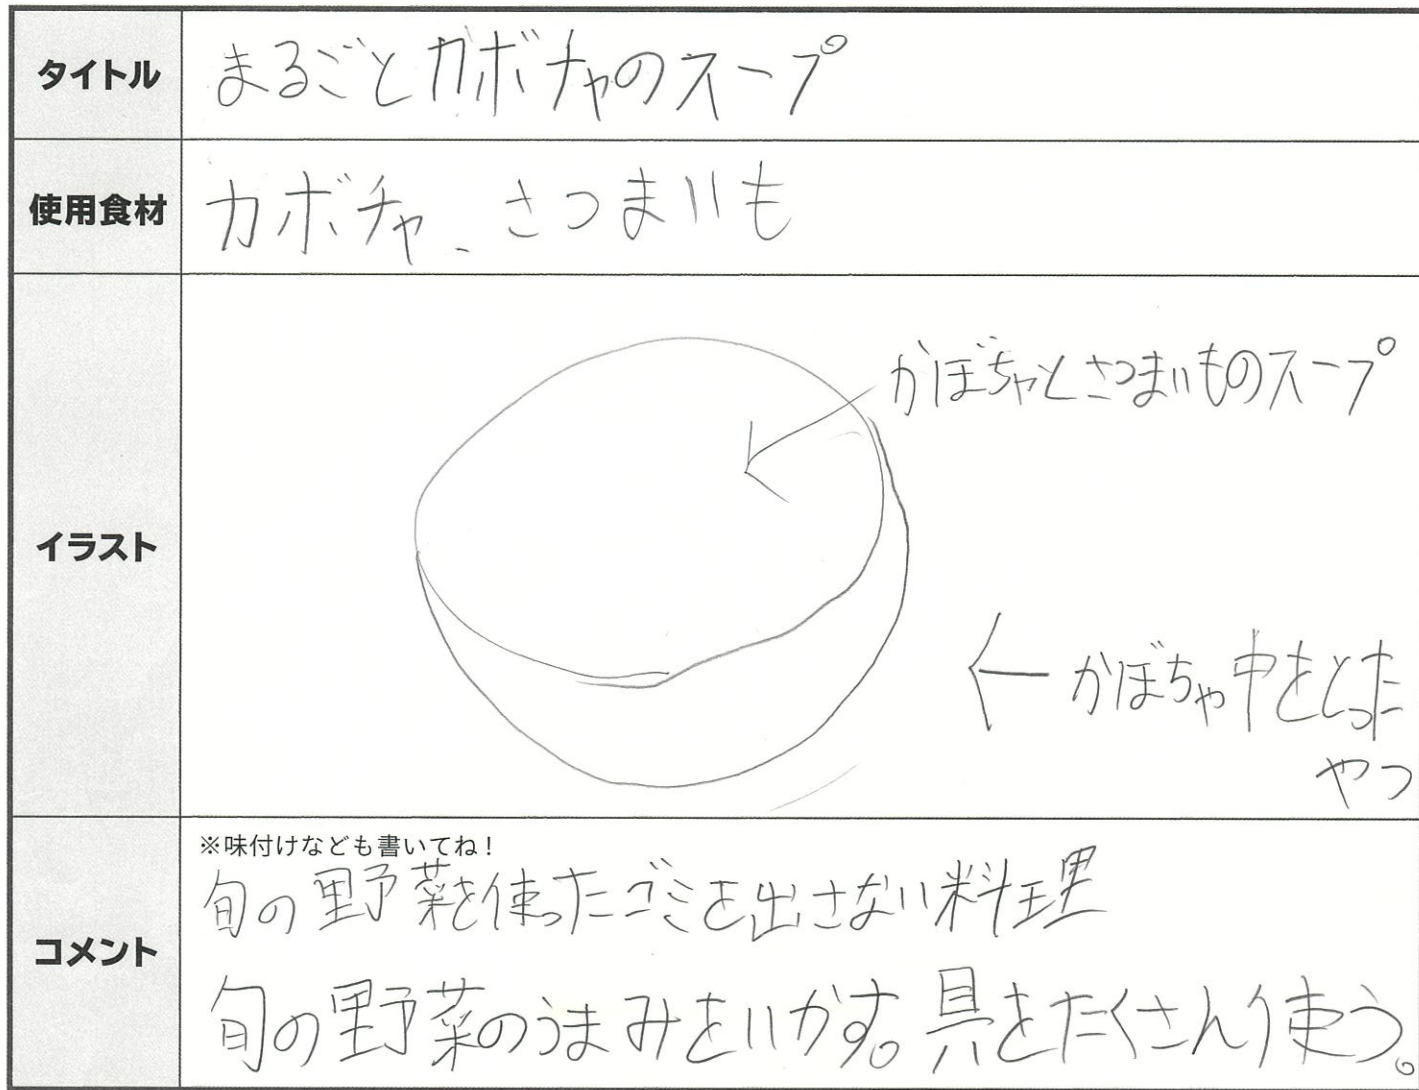 タイトル
まるごとカボチャのスープ
使用食材
カボチャ、さつまいも
イラスト
かぼちゃとさつまいものスープ
かぼちゃ中をとった
やつ
コメント
※味付けなども書いてね！
旬の野菜を使ったゴミを出さない料理
旬の野菜のうまみをいかす。具をたくさん使う。